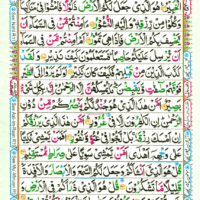 الْخَبِيْرُ هُوَ الَّذِيْ جَعَلَ لَكُمُ الْاَرْضَ ذَلُوْلًا فَامْشُوْا فِيْ مَنَاكِبِهَا
وَكُلُوْا مِنْ رِّزْقِهٖ وَاِلَيْهِ النُّشُوْرُ ءَاَمِنْتُمْ مَّنْ فِي السَّمَآءِ اَنْ
يَّخْسِفَ بِكُمُ الْاَرْضَ فَاِذَا هِيَ تَمُوْرُ اَمْ اَمِنْتُمْ مَّنْ فِي السَّمَآءِ
اَنْ يُّرْسِلَ عَلَيْكُمْ حَاصِبًا فَسَتَعْلَمُوْنَ كَيْفَ نَذِيْرِ وَلَقَدْ
كَذَّبَ الَّذِيْنَ مِنْ قَبْلِهِمْ فَكَيْفَ كَانَ نَكِيْرِ اَوَلَمْ يَرَوْا اِلَى الطَّيْرِ
فَوْقَهُمْ صٰٓفّٰتٍ وَّيَقْبِضْنَ مَا يُمْسِكُهُنَّ اِلَّا الرَّحْمٰنُ اِنَّهٗ بِكُلِّ شَيْءٍ
بَصِيْرٌ اَمَّنْ هٰذَا الَّذِيْ هُوَ جُنْدٌ لَّكُمْ يَنْصُرُكُمْ مِّنْ دُوْنِ
الرَّحْمٰنِ اِنِ الْكٰفِرُوْنَ اِلَّا فِيْ غُرُوْرٍ اَمَّنْ هٰذَا الَّذِيْ يَرْزُقُكُمْ
اِنْ اَمْسَكَ رِزْقَهٗ بَلْ لَّجُّوْا فِيْ عُتُوٍّ وَّنُفُوْرٍ اَفَمَنْ يَّمْشِيْ مُكِبًّا
عَلٰى وَجْهِهٖٓ اَهْدٰٓى اَمَّنْ يَّمْشِيْ سَوِيًّا عَلٰى صِرَاطٍ مُّسْتَقِيْمٍ
قُلْ هُوَ الَّذِيْٓ اَنْشَاَكُمْ وَجَعَلَ لَكُمُ السَّمْعَ وَالْاَبْصَارَ وَالْاَفْـِٕدَةَ
قَلِيْلًا مَّا تَشْكُرُوْنَ قُلْ هُوَ الَّذِيْ ذَرَاَكُمْ فِي الْاَرْضِ